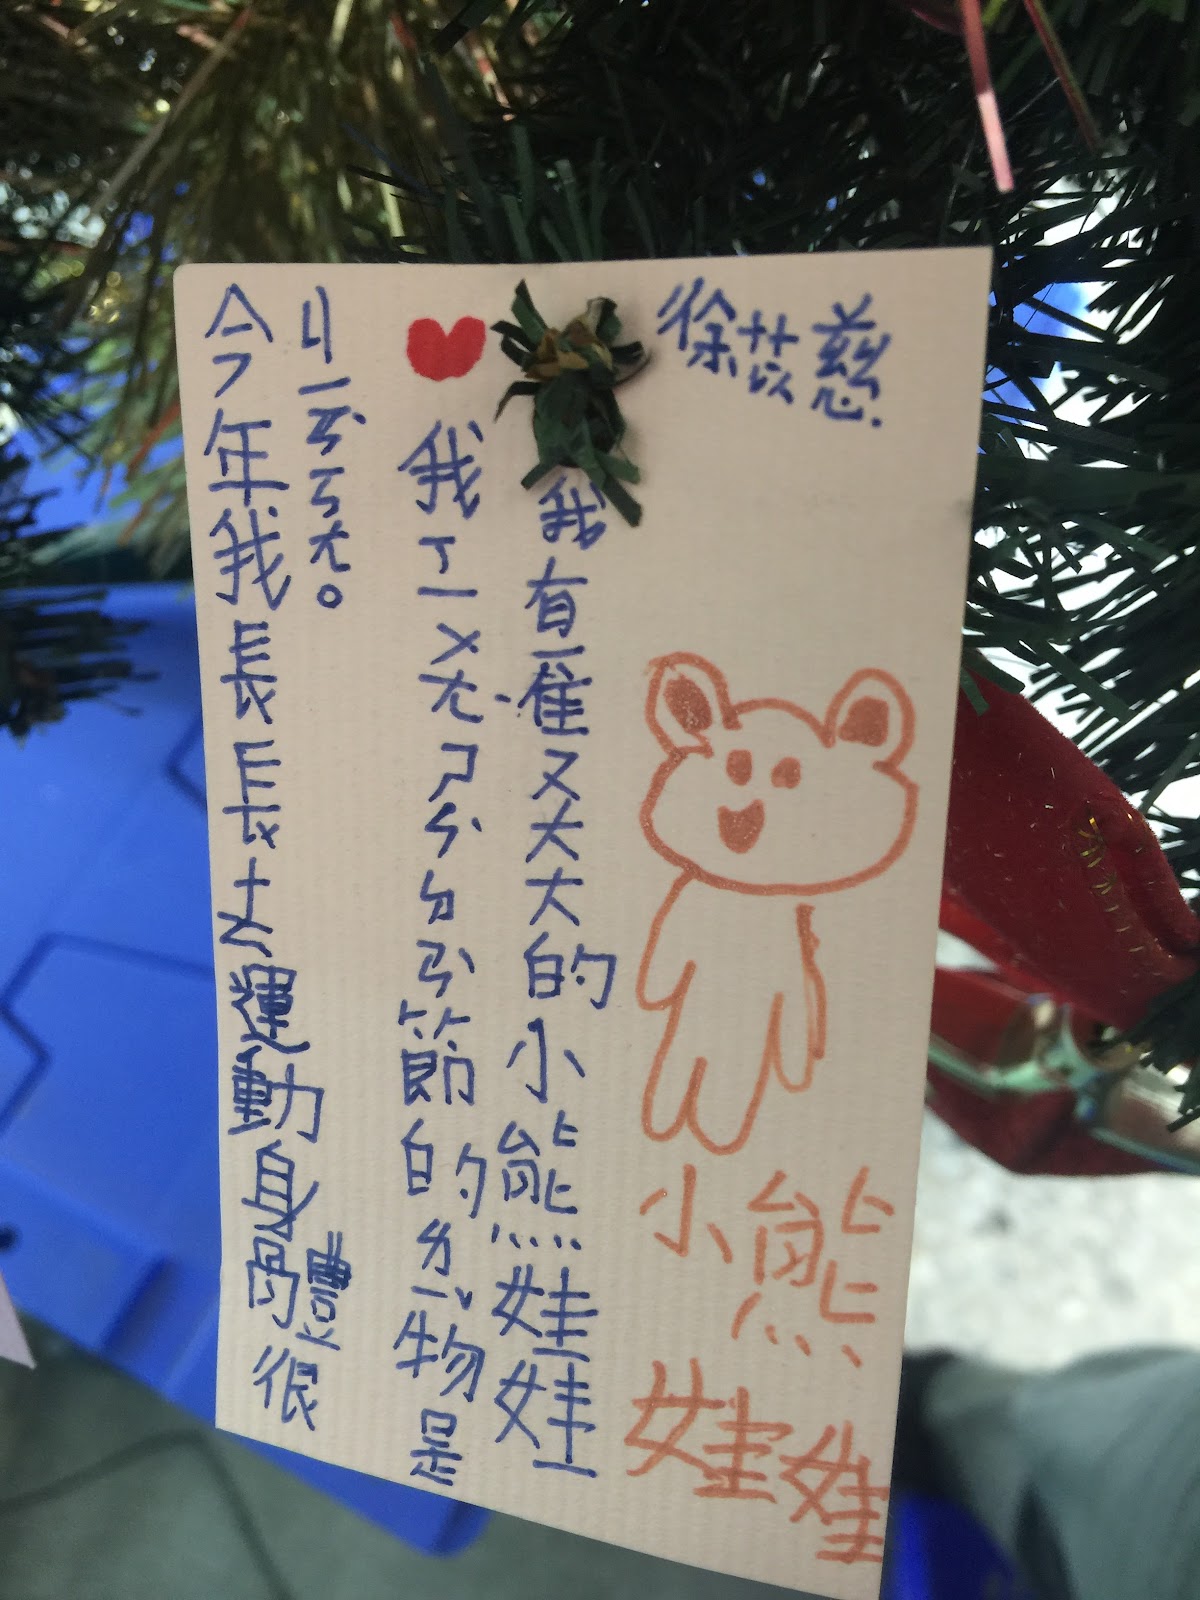 今年我長長去運動身體很
ㄐㄧㄢˋㄎㄤ。
我ㄒㄧㄨㄤˋㄕㄥˋㄉㄢˋ節的ㄌㄧˇ物是
我有一隻大大的小熊娃娃
徐苡慈
小熊
娃娃